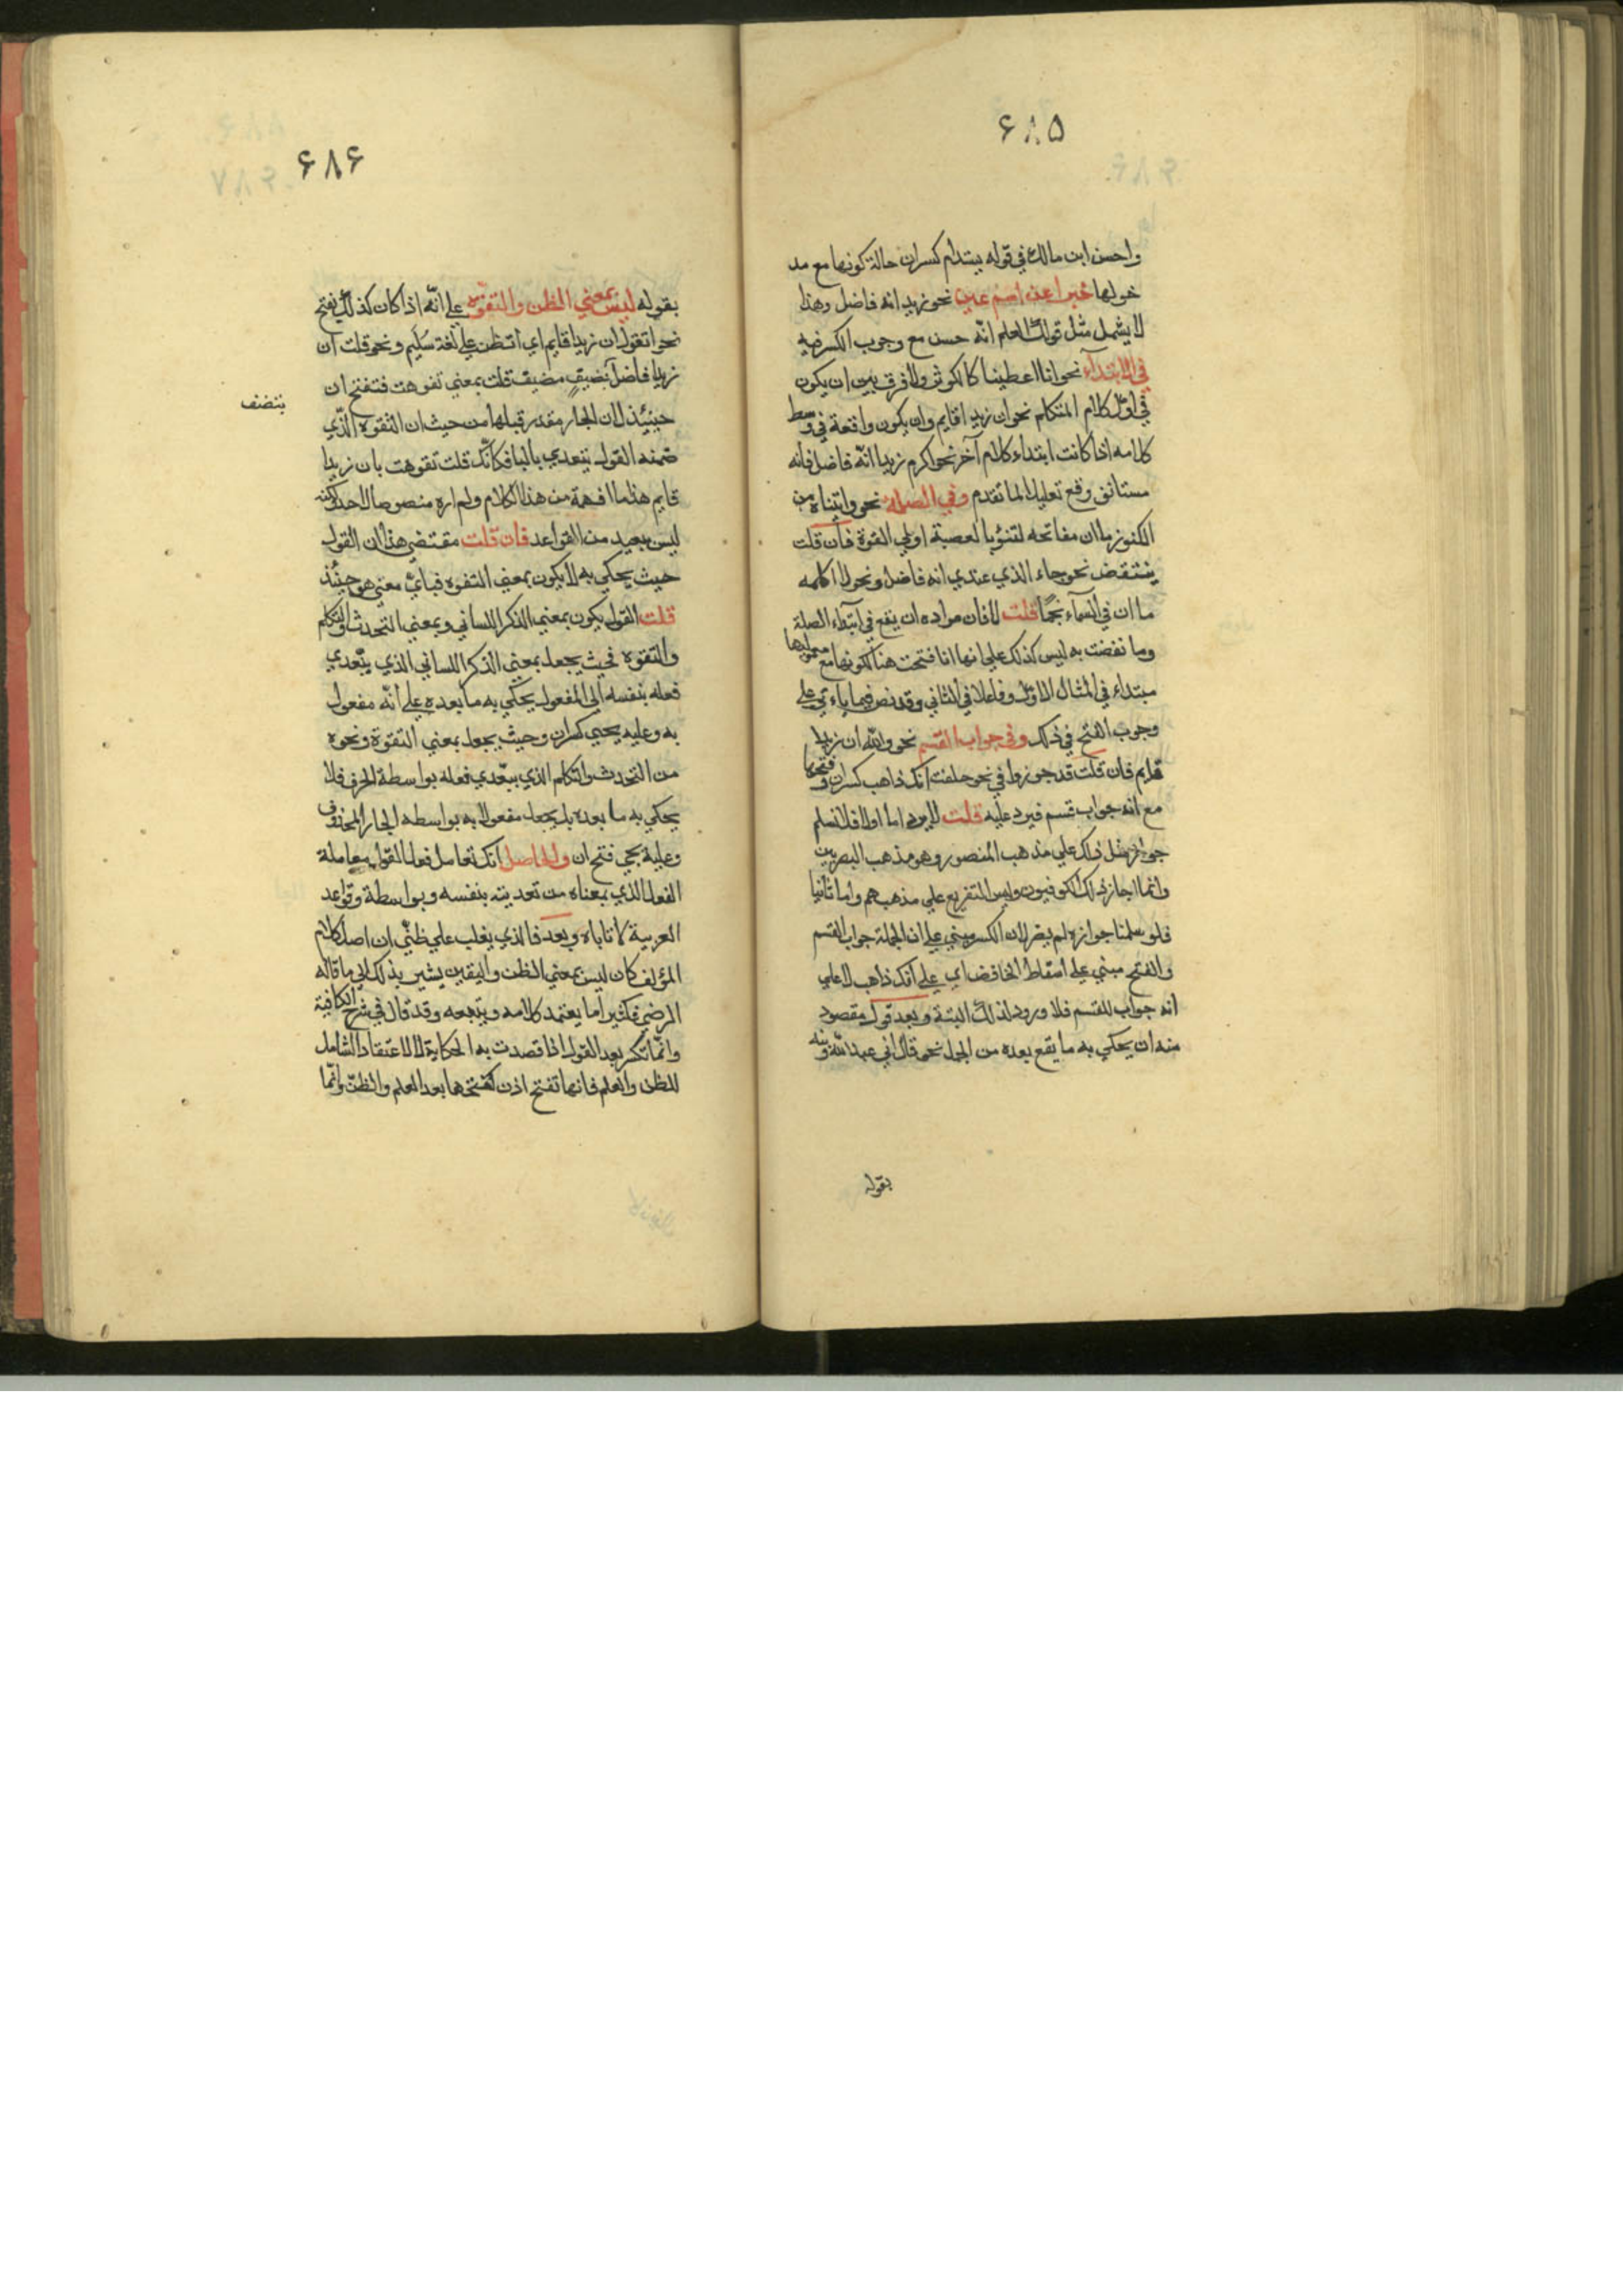 ۶۸۵
واحسن ابن مالك في قوله يبتدام كسران حالة كونها مع مد
خولها خبرا عن اسم عين نحو زيد انه فاضل وهذا
لا يشمل مثل قولك العلم انّه حسن مع وجوب الكسر فيه
في الابتدآء نحو انا اعطيناكا لكوثر ولا فرق بين ان يكون
في اوّل كلام المتكلم نحو ان زيدا قايم وان يكون واقعة في وسط
كلامه اذا كانت ابتداء كلام آخر نحو اكرم زيدا انّه فاضل فانه
مستانف وقع تعليلا لما تقدم وفي الصلة نحو واتيناه من
الكنوز ما ان مفاتحه لتنؤبا لعصبة اولي القوة فان قلت
ينتقض نحو جاء الذي عندي انه فاضل ونحو لا اكلمه
ما ان في السمآء نجمًا قلت لا فان مراده ان يقع في ابتداء الصلة
وما نقضت به ليس كذلك علي انها انا فتحت هنا لكونها مع معموليها
مبتداء في المثال الاوّل وفاعلا في الثاني وقد نص فيما ياءتي علي
وجوب الفتح في ذلك وفي جواب القسم نحو والله ان زيدا
قايم فان قلت قد جوزوا في نحو حلفت انك ذاهب كسران وفتحها
مع انه جواب قسم فيرد عليه قلت لا يرد اما اولا فلا نسلم
جواز مثل ذلك علي مذهب المنصور وهو مذهب البصريين
وانما اجاز ذلك الكوفيون وليس التفريع علي مذهبهم واما ثانيا
فلو سلمنا جوازه لم يضر لان الكسر مبني علي ان الجملة جواب القسم
والفتح مبني علي اسقاط الخافض اي علي انك ذاهب لا علي
انه جواب للقسم فلا ورود لذلك البتة وبعد قول مقصود
منه ان يحكي به ما يقع بعده من الجمل نحو قال اني عبد الله ونبه
بقوله
۶۸۶
بقوله ليس بمعني الظن والتفوّه علي انّه اذا كان كذلك يفتح
نحو اتقول ان زيدا قايم اي اتظن علي لغة سُليم ونحو قلت ان
زيدا فاضل قلت بمعني تفوهت فتفتح ان
بتضف
حينئذ لان الجار مقدر قبلها من حيث ان التفوه الّذي
ضمنه القول يتعدي بالبا فكانّك قلت تفوهت بان زيدا
قايم هذا ما افهمه من هذا الكلام ولم اره منصوصا لاحد لكنه
ليس ببعيد من القواعد فان قلت مقتضي هذا ان القول
حيث يحكي به لا يكون بمعني التفوه فباي معني هو حينئذ
قلت القول يكون بمعني الذكر اللساني وبمعني التحدث والتكلم
والتفوه فحيث يجعل بمعني الذكر اللساني الذي يتّعدي
فعله بنفسه الي المفعول يحكي به ما بعده علي انّه مفعول
به وعليه يجيي كسران وحيث يجعل بمعني التفوة ونحوه
من التحدث والتكلم الذي يتعدي فعله بواسطة الحرف فلا
يحكي به ما بعده بل يجعل مفعولا به بواسطه الجار المحذوف
وعليه يجي فتح ان والحاصل انك تعامل فعل القول معاملة
الفعل الذي بمعناه من تعديته بنفسه وبواسطة وقواعد
العربية لا تاباه وبعد فالذي يغلب علي ظنّي ان اصل كلام
المؤلف كان ليس بمعني الظن واليقين يشير بذلك الي ما قاله
الرضي فكثيرا ما يعتمد كلامه ويتبعه وقد قال في شرح الكافية
وانّما تكسر بعد القول اذا قصدت به الحكاية لا الاعتقاد الشامل
للظن والعلم فانها تفتح اذن كفتحها بعد العلم والظنّ وانّما